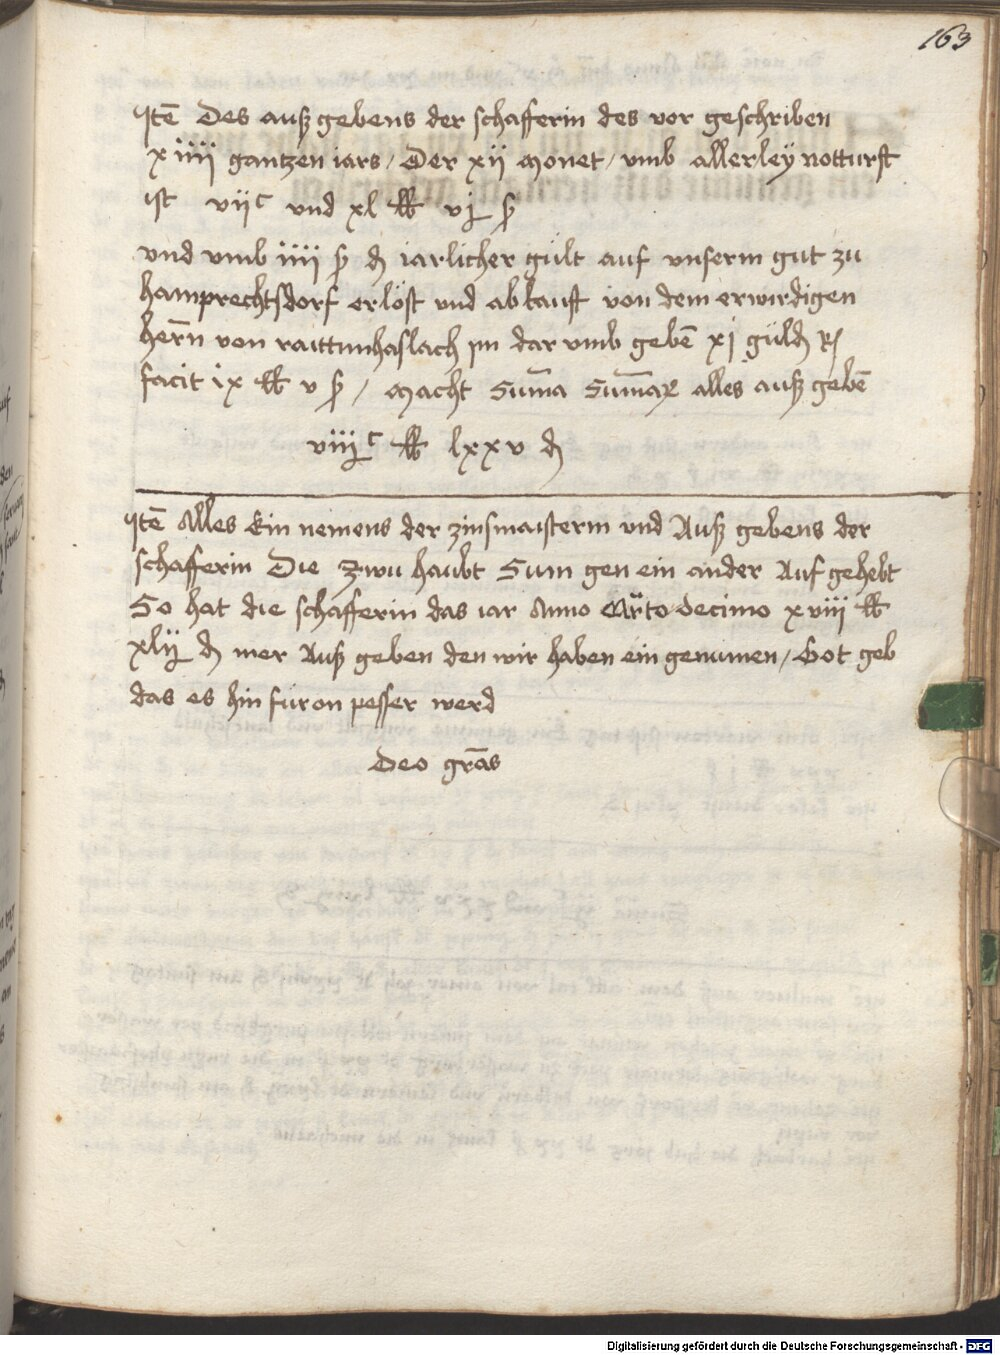 163
Itē des auß gebens der schafferin des vor geschriben
xiiij gantzen iars / Der xij monet / vmb allerley notturft
ist vijᶜ vnd xl ℔ vj ß
vnd vmb iiij ß ₰ iarlicher gült auf vnserm gut zu
hamprechtsdorf erlöst vnd abkauft von dem erwirdigen
herrn von raittnhaslach ym dar vmb gebē xj güld R
facit ix ℔ v ß / macht Suma Sumaꝝ alles auß gebē
viijᶜ ℔ lxxv ₰
Itē Alles Ein nemens der zinsmaisterin vnd Auß gebens der
schafferin Die zwu haubt Sum gen ein ander Auf gehebt
So hat die schafferin das iar Anno Qrto decimo xviij ℔
xlij ₰ mer Auß geben den wir haben ein genumen / Got geb
das es hin füron pesser werd
Deo grās
Digitalisierung gefördert durch die Deutsche Forschungsgemeinschaft - DFG